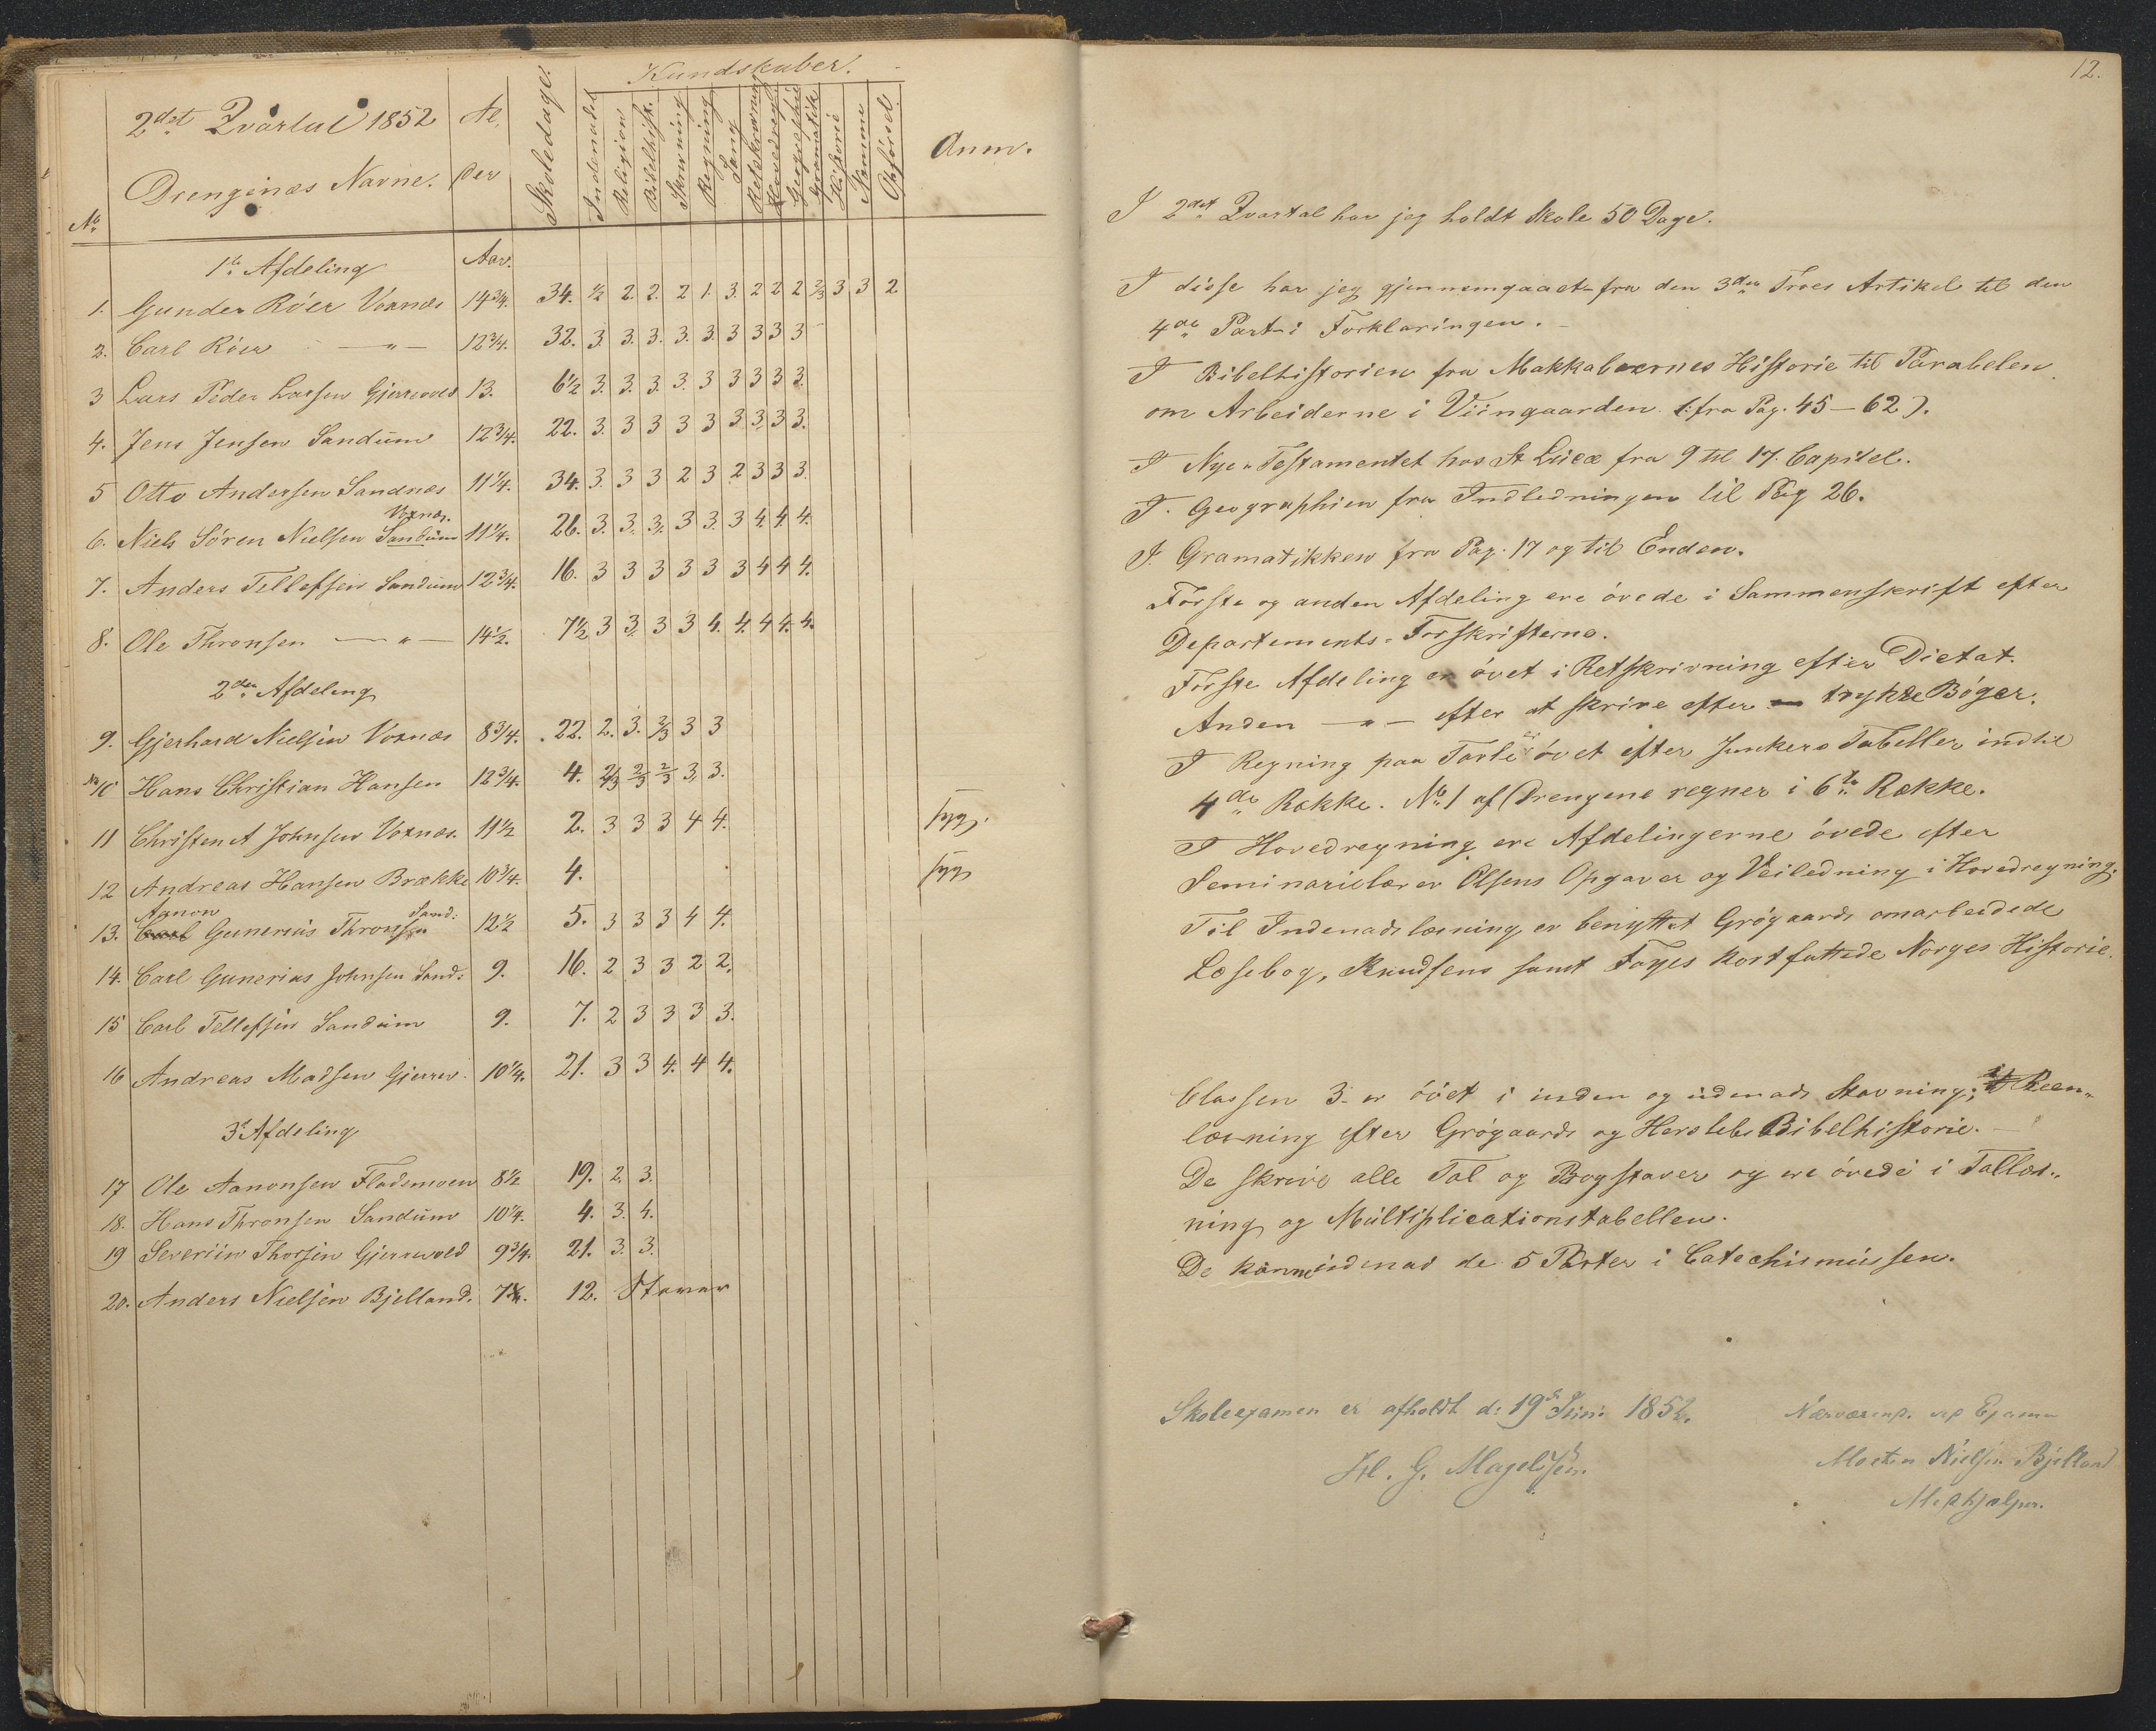 2det Qvartal 1852
Drengenes Navne.
No
Al
der
Skoledage.
Kundskaber.
Indenadsl
Religion
Bibelhist.
Skrivning
Regning
Sang
Retskrivning
Hovedregn
Geographie
Gramatik
Historie
Nomme
Opførsel.
Anm.
1te Afdeling Aar.
1. Gunder Röer Voxnæs 14 3/4. 34. 1/2 2. 2. 2 1. 3. 2 2 2 2/3 3 3 2
2. Carl Röer — " — 12 3/4. 32. 3. 3. 3. 3. 3. 3 3 3 3
3 Lars Peder Larsen Gjerrvold 13. 6 1/2 3. 3. 3. 3. 3 3 3 3 3.
4. Jens Jensen Sandum 12 3/4. 22. 3. 3 3 3 3 3 3 3 3.
5 Otto Andersen Sandnæs 11 1/4. 34. 3. 3 3 2 3 2 3 3 3.
Voxnæs.
6. Niels Sören Nielsen Sandum 11 1/4. 26. 3. 3. 3. 3 3. 3 4. 4. 4.
7. Anders Tellefsen Sandum 12 3/4. 16. 3 3 3 3 3 3 4 4 4.
8. Ole Thronsen — " — 14 1/2. 7 1/2 3 3. 3 3 4. 4. 4 4. 4.
2den Afdeling
9. Gjerhard Nielsen Voxnæs 8 3/4. 22. 2. 3. 2/3 3 3
No 10 Hans Christian Hansen 12 3/4. 4. 2/3 2/3 2/3 3. 3.
11 Christen A Johnsen Voxnæs. 11 1/2 2. 3 3 3 4 4. syg.
12 Andreas Hansen Brække 10 3/4. 4. syg
Aanon Sand:
13. Carl Gunerius Thronsen 12 1/2 5. 3 3 3 4 4.
14. Carl Gunerius Johnsen Sand: 9. 16. 2 3 3 2 2.
15 Carl Tellefsen Sandum 9. 7. 2 3 3 3 3.
16 Andreas Madsen Gjerrv. 10 1/4. 21. 3 3 4. 4 4.
3die Afdeling
17 Ole Aanonsen Flademoen 8 1/2 19. 2. 3.
18. Hans Thronsen Sandum 10 1/4. 4. 3. 4.
19 Severiin Thorsen Gjerrwold 9 3/4. 21. 3. 3.
20. Anders Nielsen Bjelland. 7 3/4. 12. Staver
12.
I 2det Qvartal har jeg holdt Skole 50 Dage.
I disse har jeg gjennemgaaet fra den 3die Troes Artikel til den
4de Part i Forklaringen.
I Bibelhistorien fra Makkabæernes Historie til Parabelen
om Arbeiderne i Viingaarden (: fra Pag. 45 — 62).
I Nye Testamentet hos St Lucæ fra 9 til 17. Capitel.
I. Geographien fra Indledningen til Pag 26.
I. Gramatikken fra Pag. 17 og til Enden.
Förste og anden Afdeling ere övede i Sammenskrift efter
Departements-Forskrifterne.
Förste Afdeling er övet i Retskrivning efter Dictat.
Anden — " — efter at skrive efter trykte Böger.
I Regning paa Tavle er övet efter Junkers Tabeller indtil
4de Række. No 1 af Drengene regner i 6te Række.
I Hovedregning ere Afdelingerne övede efter
Seminarielærer Olsens Opgaver og Veiledning i Hovedregning.
Til Indenadslæsning er benyttet Grögaards omarbeidede
Læsebog, Knudsens samt Fayes kortfattede Norges Historie.
Classen 3. er övet i inden og udenads Stavning; i Reen-
læsning efter Grögaards og Herslebs Bibelhistorie.
De skrive alle Tal og Bogstaver og ere övede i Tallæs-
ning og Multiplicationstabellen.
De kunne udenad de 5 Parter i Catechismussen.
Skoleexamen er afholdt d: 19de Juni 1852.
H. G. Magelssen.
Nærværend. ved Examen
Morten Nielsen Bjelland
Medhjelper.